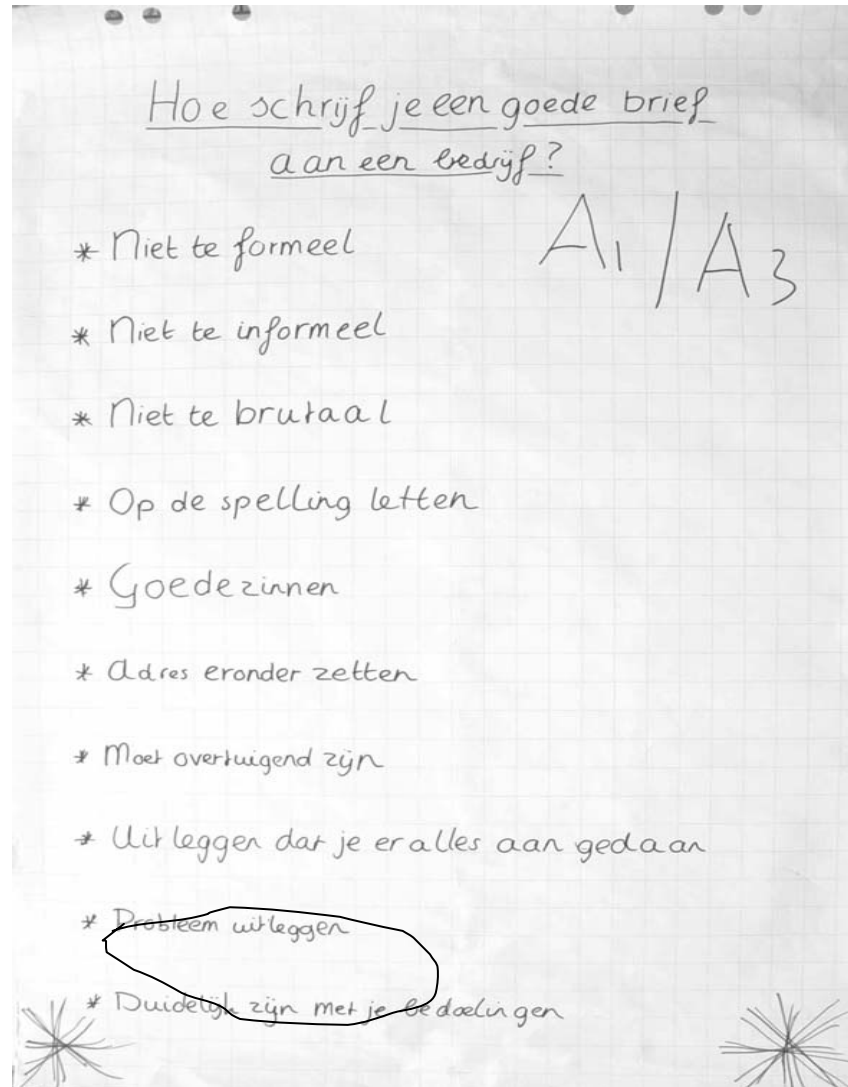 Hoe schrijf je een goede brief
aan een bedrijf?
A1/A3
* Niet te formeel
* Niet te informeel
* Niet te brutaal
* Op de spelling letten
* Goede zinnen
* Adres eronder zetten
* Moet overtuigend zijn
* Uit leggen dat je er alles aan gedaan
* Probleem uitleggen
* Duidelijk zijn met je bedoelingen